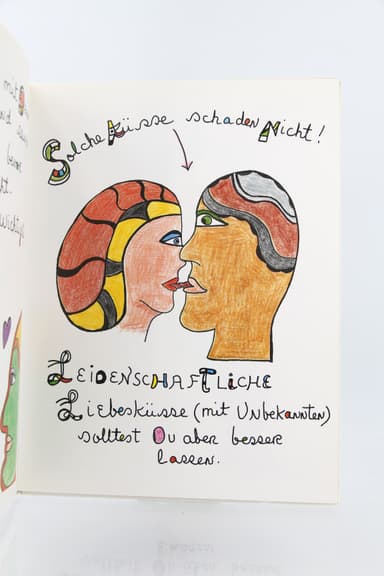 mit
nd
Solche Küsse schaden Nicht!
LEIDENSCHAFTLiCHE
Liebesküsse (mit UNbekannten)
solltest Du aber besser
lassen.